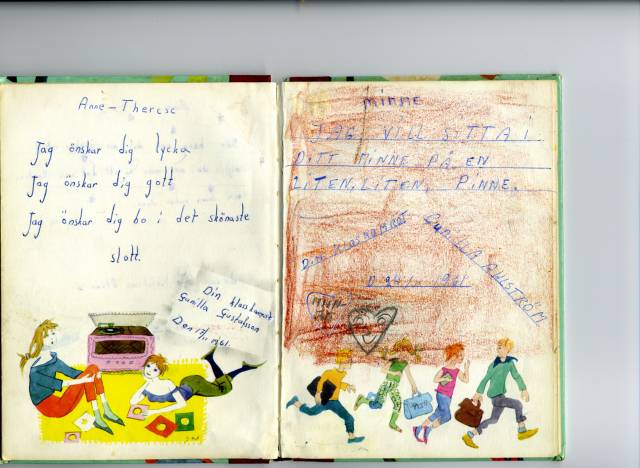 Anne-Therese
Jag önskar dig lycka
Jag önskar dig gott
Jag önskar dig bo i det skönaste
slott.
Din klasskamrat
Gunilla Gustafsson
Den 17/11 1961.
MINNE
JAG VILL SITTA I
DITT MINNE PÅ EN
LITEN, LITEN, PINNE.
DIN KLASKAMRAT
GUNILLA
D 24/11 1961